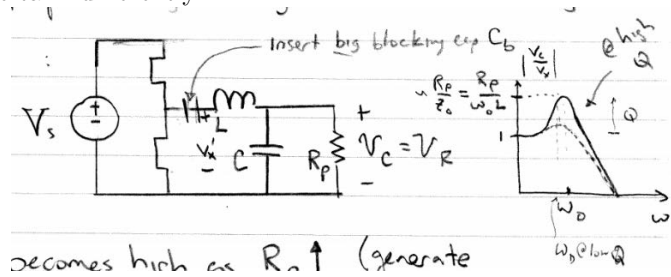 Insert big blocking cap C_b
V_s
+
-
+
L
V_x'
-
C
R_p
+
V_C = V_R
-
|V_c/V_x|
@ high Q
~ R_p/Z_o = R_p/ω_o L
Q
1
ω_o
ω
ω_o @ low Q
becomes high as R_p ↑ (generate